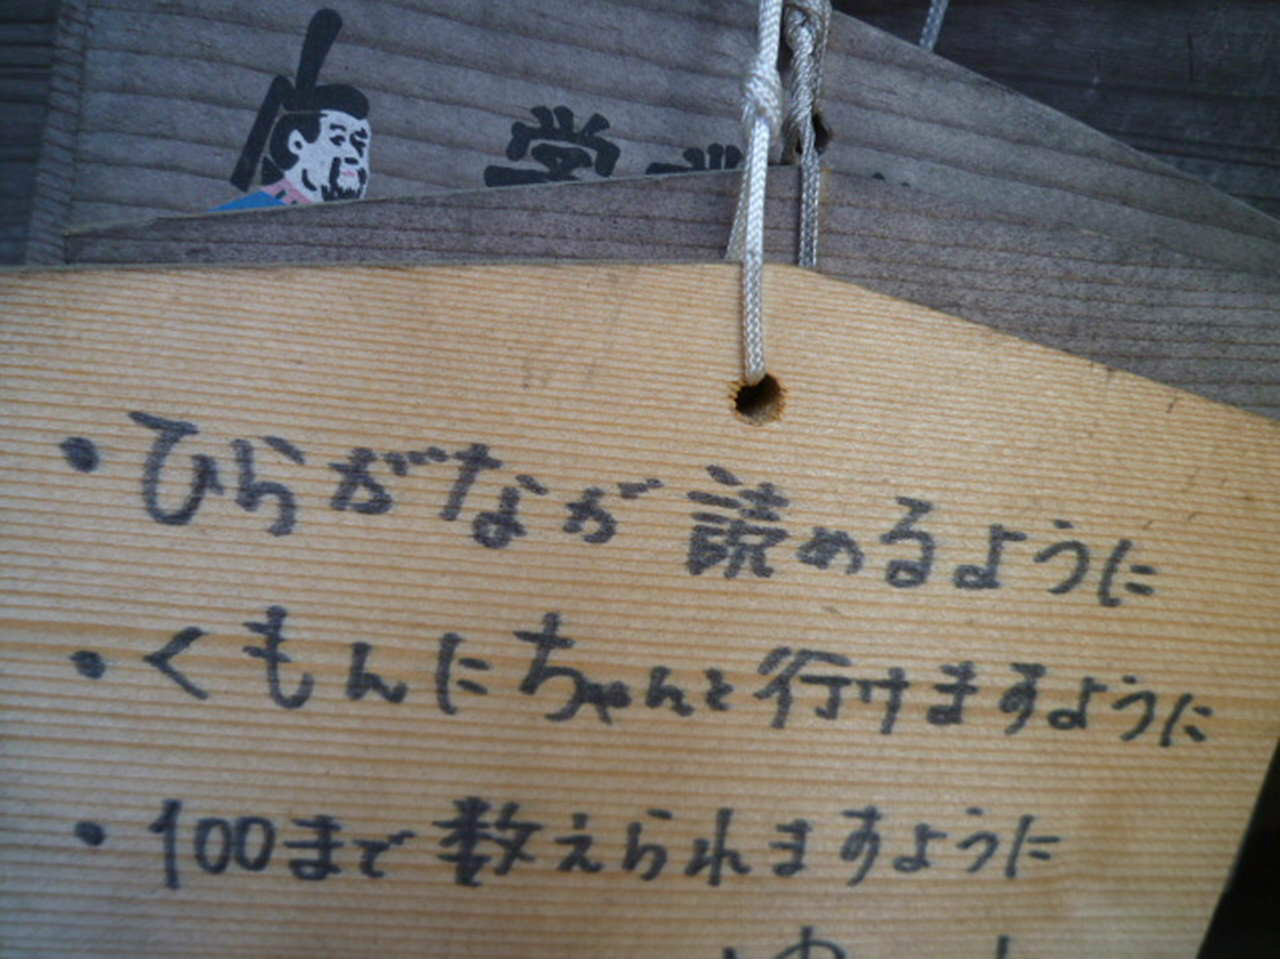 学
・ひらがなが読めるように
・くもんにちゃんと行けますように
・100まで数えられますように